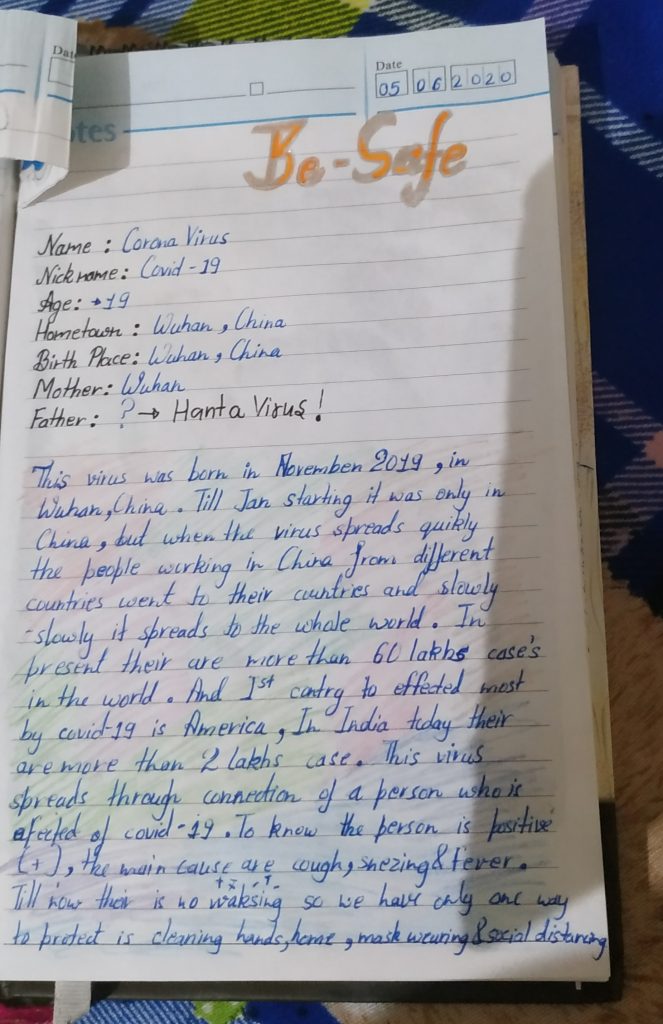 Date
05 06 2020
tes
Be-Safe
Name : Corona Virus
Nickname: Covid-19
Age: →19
Hometown : Wuhan, China
Birth Place: Wuhan, China
Mother: Wuhan
Father: ? → Hanta Virus!
This virus was born in November 2019, in
Wuhan, China. Till Jan starting it was only in
China, but when the virus spreads quikly
the people working in China from different
countries went to their countries and slowly
-slowly it spreads to the whole world. In
present their are more than 60 lakhs case's
in the world. And 1st contry to effected most
by covid-19 is America, In India today their
are more than 2 lakhs case. This virus
spreads through connection of a person who is
afected of covid-19. To know the person is positive
(+), the main cause are cough, snezing & fever.
Till now their is no waksing so we have only one way
to protect is cleaning hands, home, mask wearing & social distancing